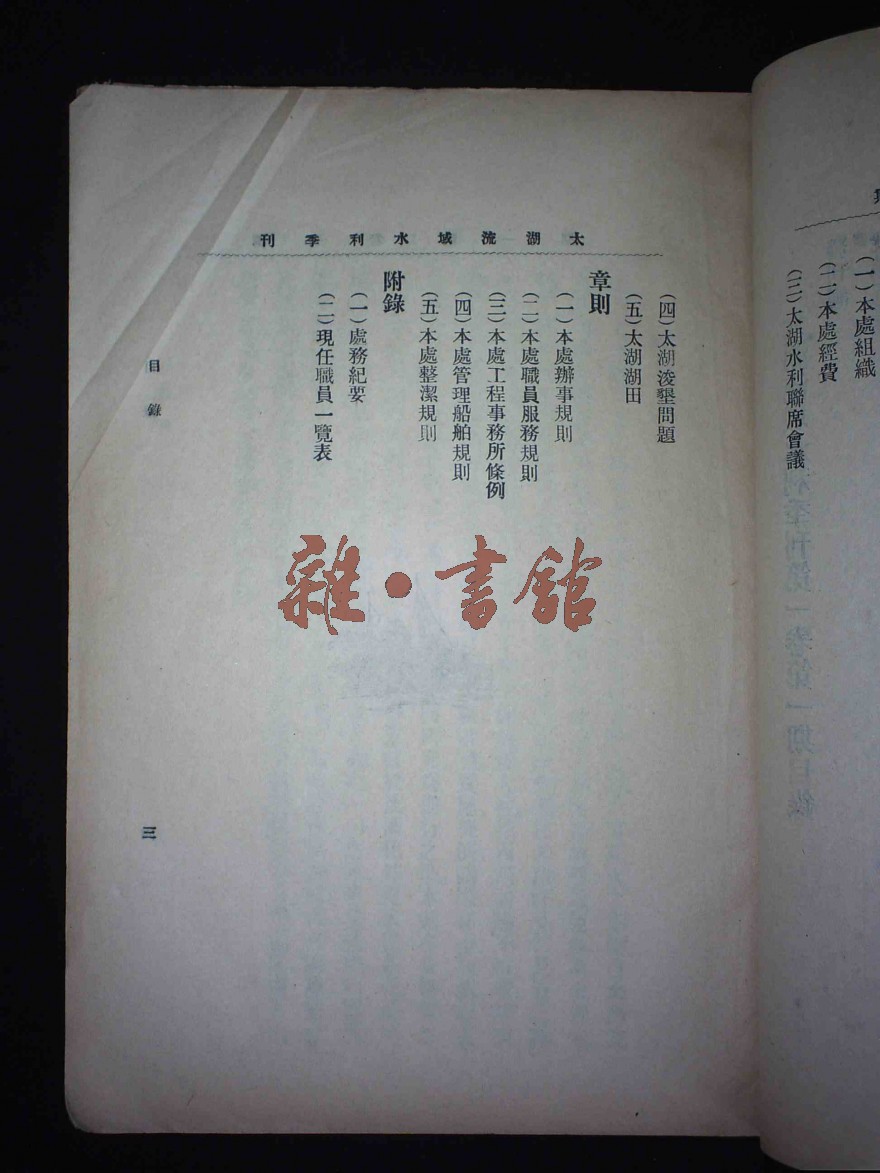 (一)本處組織
(二)本處經費
(三)太湖水利聯席會議
太湖流域水利季刊
(四)太湖浚墾問題
(五)太湖湖田
章則
(一)本處辦事規則
(二)本處職員服務規則
(三)本處工程事務所條例
(四)本處管理船舶規則
(五)本處整潔規則
附錄
(一)處務紀要
(二)現任職員一覽表
目錄
三
雜·書館